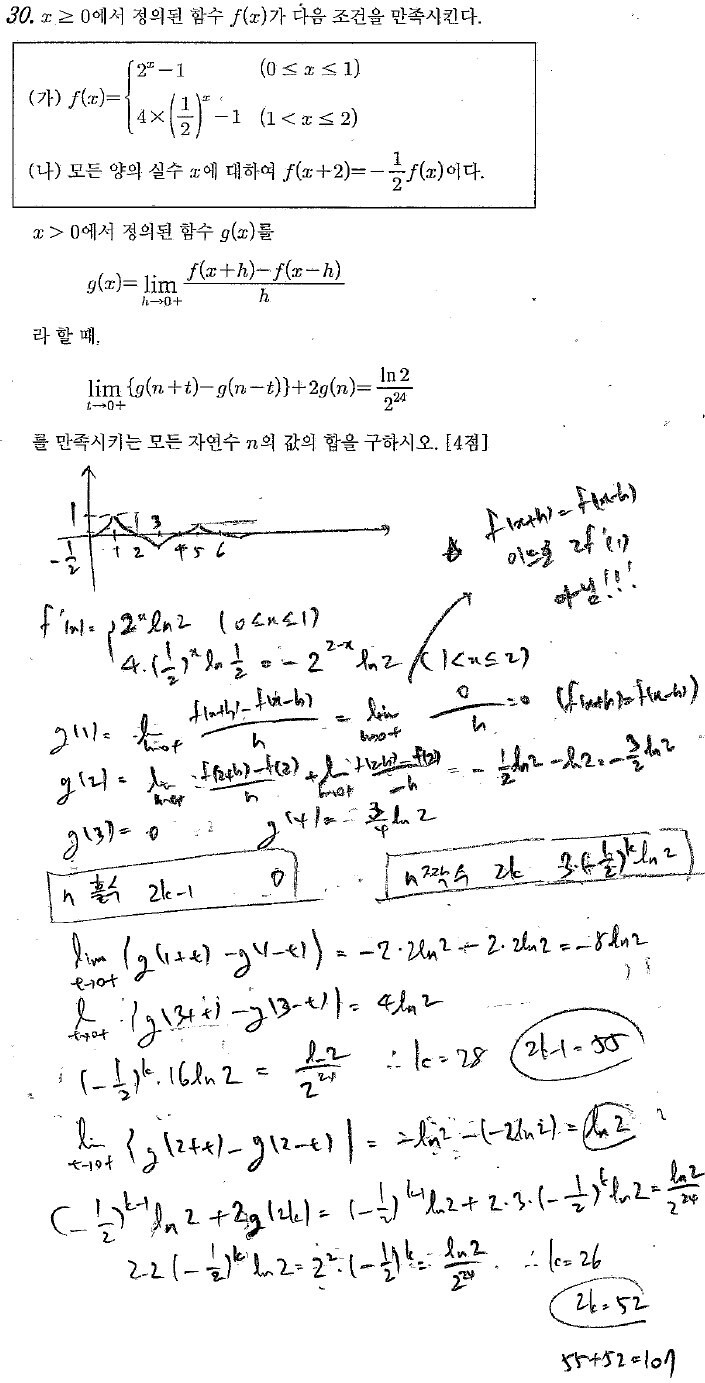 30. x ≥ 0에서 정의된 함수 f(x)가 다음 조건을 만족시킨다.
(가) f(x)= { 2^x − 1 (0 ≤ x ≤ 1)
4×(1/2)^x − 1 (1 < x ≤ 2)
(나) 모든 양의 실수 x에 대하여 f(x+2)=−1/2 f(x)이다.
x > 0에서 정의된 함수 g(x)를
g(x)= lim h→0+ f(x+h)−f(x−h) / h
라 할 때,
lim t→0+ {g(n+t)−g(n−t)}+2g(n)= ln2 / 2^24
를 만족시키는 모든 자연수 n의 값의 합을 구하시오. [4점]
1
-1/2
1 2 3 4 5 6
f(x+h) = f(x-h)
이므로 2f'(1)
아님!!!
f'(x)= { 2^x ln2 (0≤x≤1)
4·(1/2)^x ln 1/2 = -2^{2-x} ln2 (1<x≤2)
g(1)= lim h→0+ f(x+h)-f(x-h) / h = lim h→0+ 0/h =0 (f(x+h)=f(x-h))
g(2)= lim h→0+ f(2+h)-f(2) / h + lim h→0+ f(2-h)-f(2) / -h = -1/2 ln2 - ln2 = -3/2 ln2
g(3)= 0 g(4)= 3/4 ln2
n 홀수 2k-1 0
n 짝수 2k 3·(-1/2)^k ln2
lim t→0+ {g(1+t) -g(1-t)} = -2·2ln2 - 2·2ln2 = -8ln2
lim t→0+ {g(3+t) -g(3-t)} = 4ln2
(-1/2)^k · 16ln2 = ln2 / 2^24 ∴ k=28 2k-1=55
lim t→0+ {g(2+t)-g(2-t)} = -ln2 -(-2ln2) = ln2
(-1/2)^{k-1} ln2 + 2g(2k) = (-1/2)^{k-1} ln2 + 2·3·(-1/2)^k ln2 = ln2 / 2^24
2·2(-1/2)^k ln2 = 2^2·(-1/2)^k = ln2 / 2^24 ∴ k=26
2k=52
55+52=107